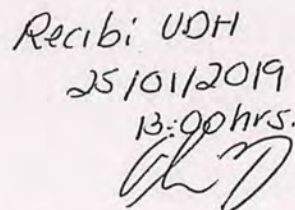 Recibi UDH
25/01/2019
13:00hrs.